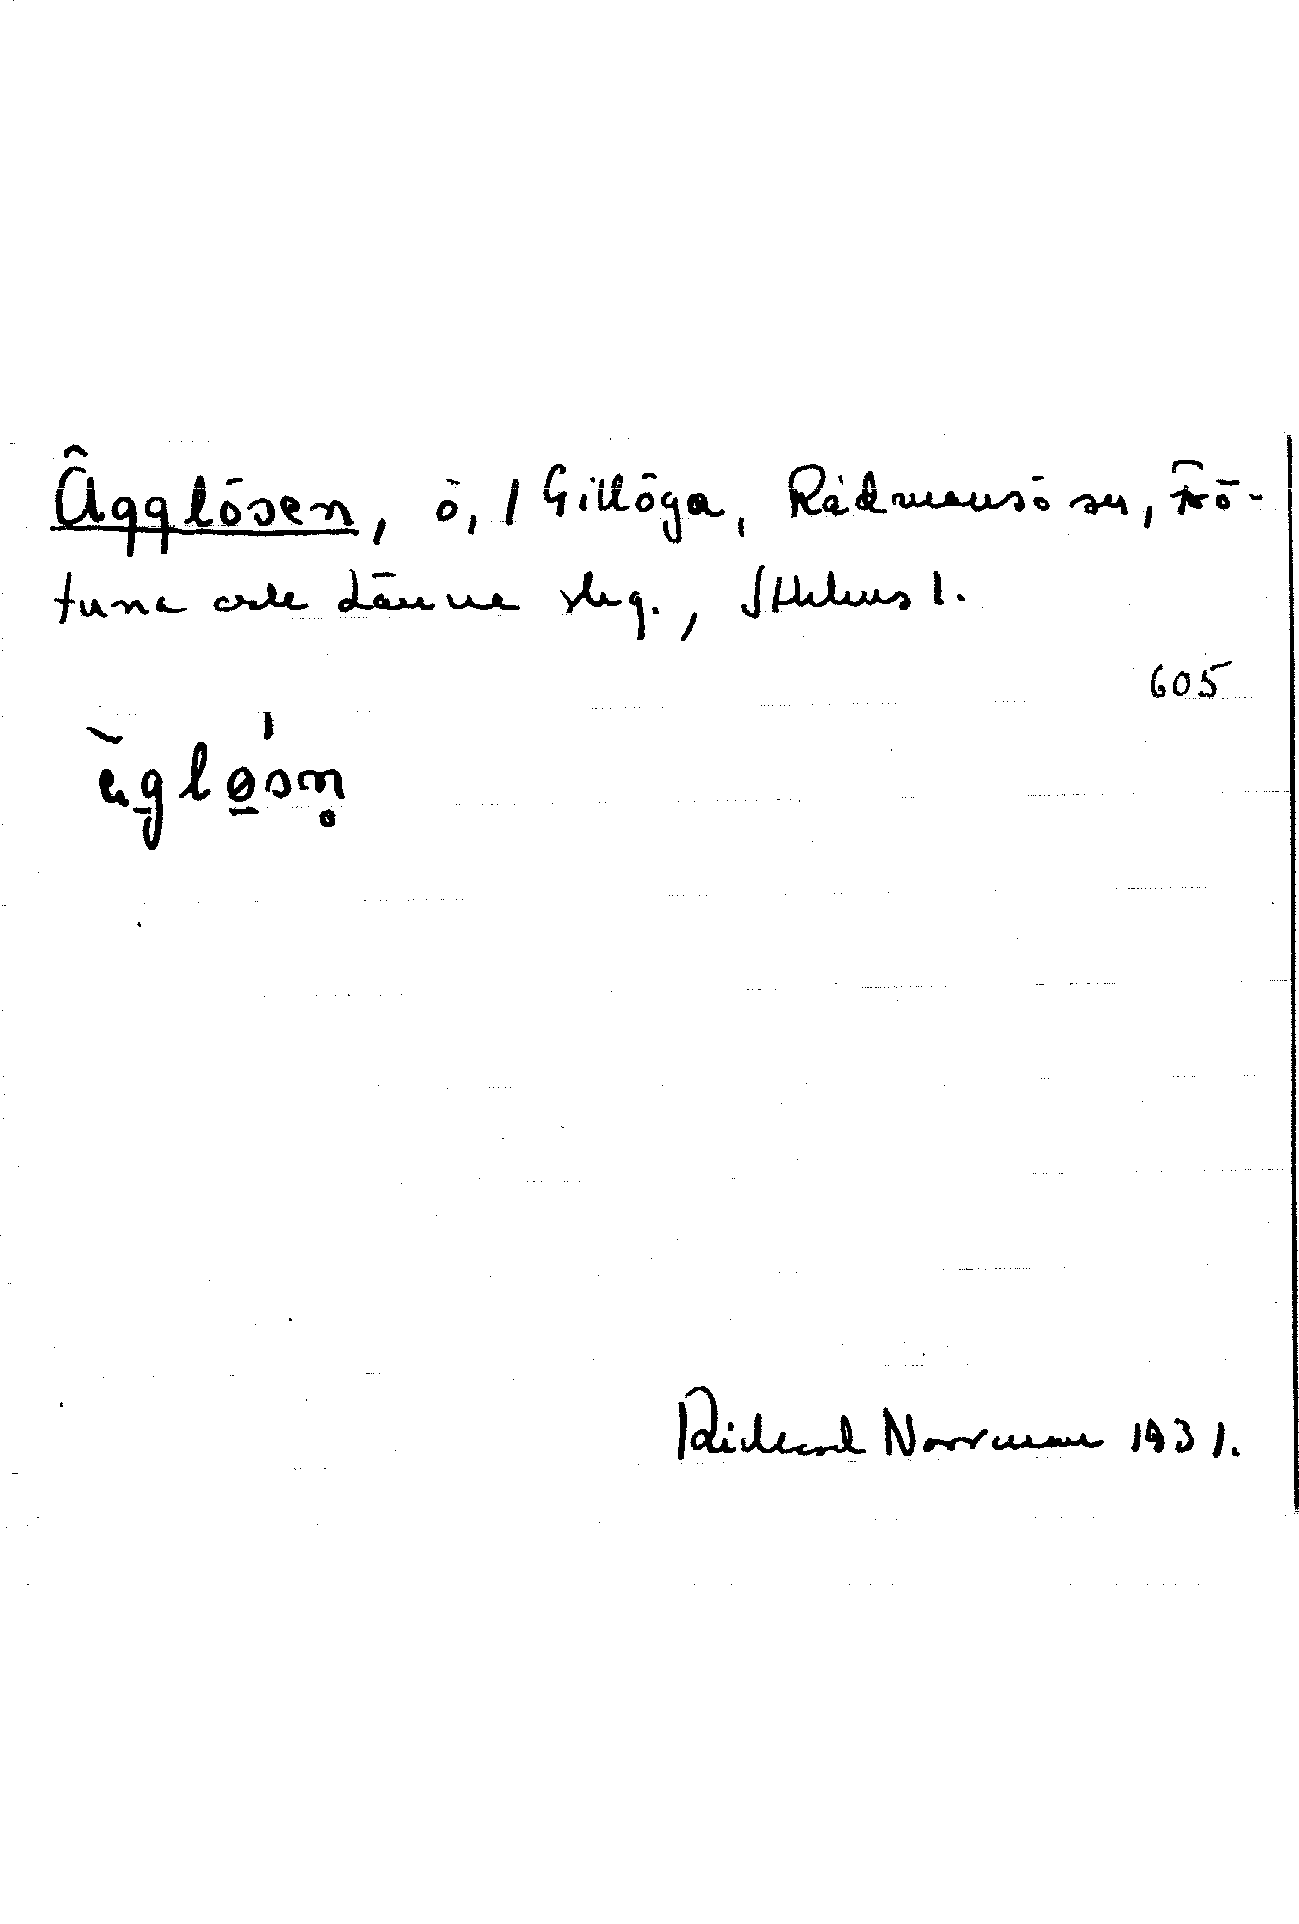 Ägglösen, ö, i Gillöga, Rådmansö sn, Frö-
tuna och Länna skg., Sthlms l.
605
ὲgløsn̥
Richard Norrman 1931.